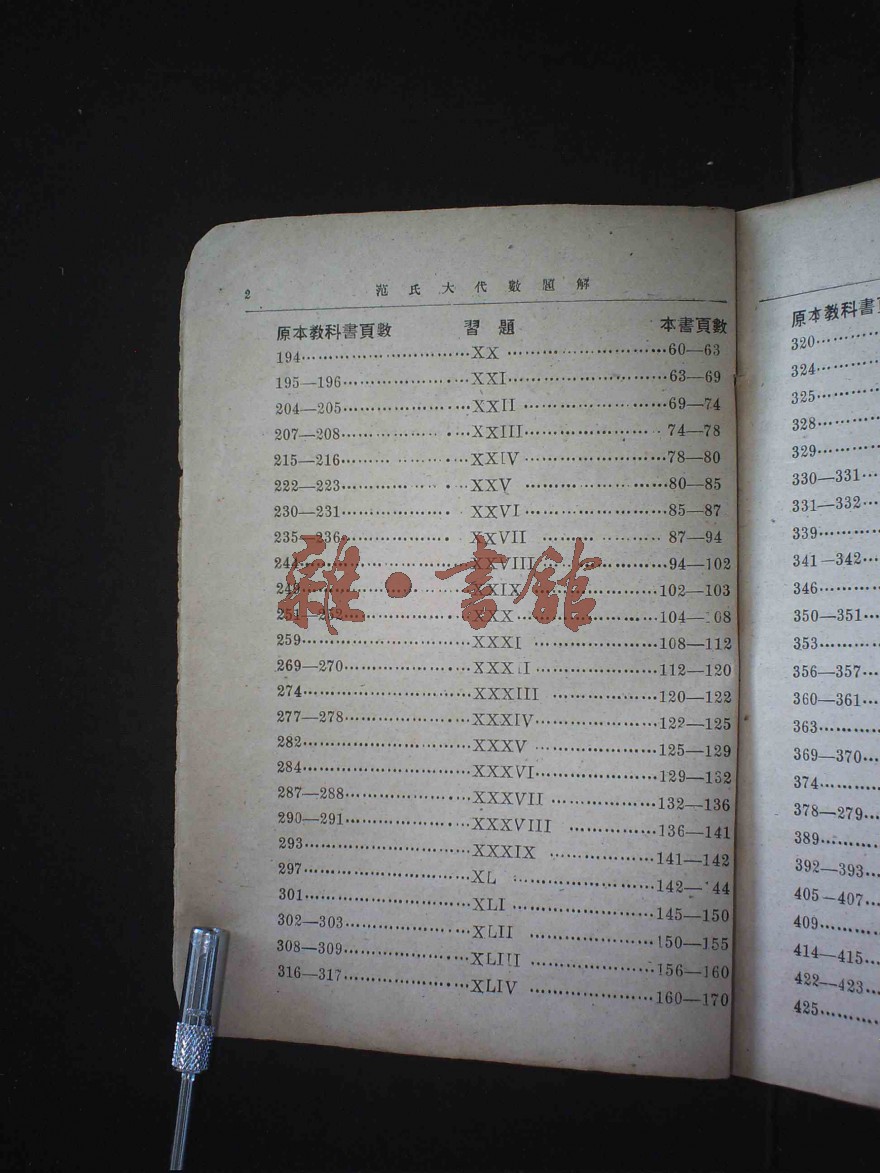 2 范氏大代數題解
原本教科書頁數 習題 本書頁數
194 XX 60—63
195—196 XXI 63—69
204—205 XXII 69—74
207—208 XXIII 74—78
215—216 XXIV 78—80
222—223 XXV 80—85
230—231 XXVI 85—87
235—236 XXVII 87—94
244 XXVIII 94—102
249 XXIX 102—103
251—252 XXX 104—108
259 XXXI 108—112
269—270 XXXII 112—120
274 XXXIII 120—122
277—278 XXXIV 122—125
282 XXXV 125—129
284 XXXVI 129—132
287—288 XXXVII 132—136
290—291 XXXVIII 136—141
293 XXXIX 141—142
297 XL 142—144
301 XLI 145—150
302—303 XLII 150—155
308—309 XLIII 156—160
316—317 XLIV 160—170
雜·書館
原本教科書
320
324
325
328
329
330—331
331—332
339
341—342
346
350—351
353
356—357
360—361
363
369—370
374
378—279
389
392—393
405—407
409
414—415
422—423
425